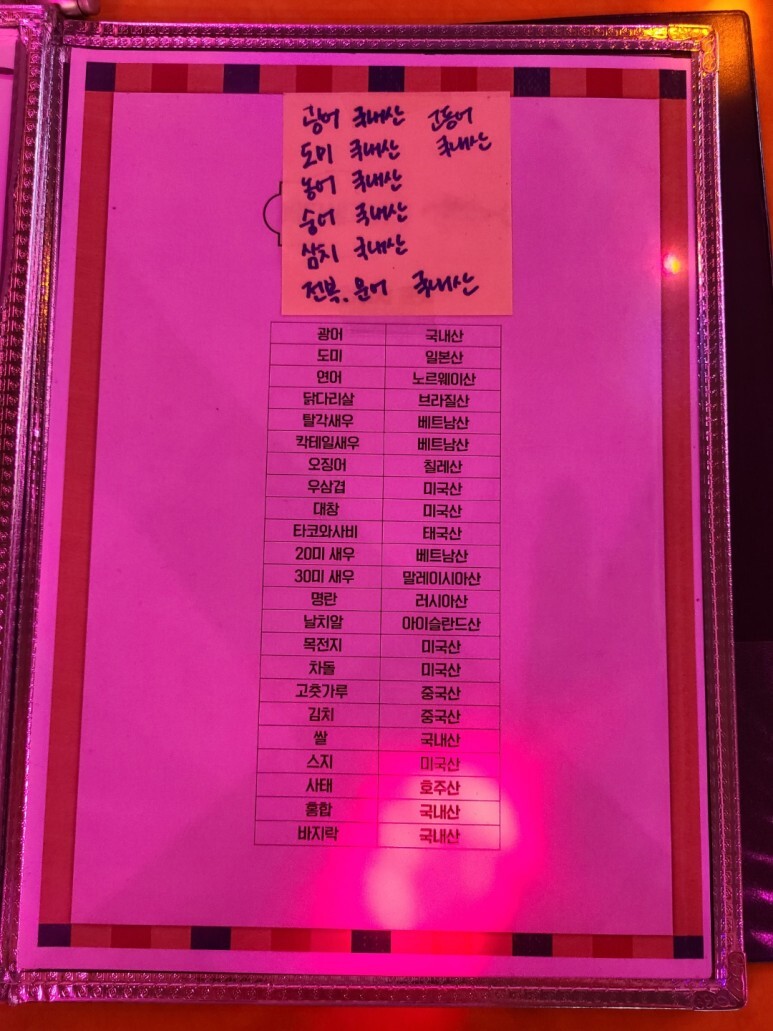 광어 국내산 고등어
도미 국내산 국내산
농어 국내산
숭어 국내산
삼치 국내산
전복, 문어 국내산
광어 국내산
도미 일본산
연어 노르웨이산
닭다리살 브라질산
탈각새우 베트남산
칵테일새우 베트남산
오징어 칠레산
우삼겹 미국산
대창 미국산
타코와사비 태국산
20미 새우 베트남산
30미 새우 말레이시아산
명란 러시아산
날치알 아이슬란드산
목전지 미국산
차돌 미국산
고춧가루 중국산
김치 중국산
쌀 국내산
스지 미국산
사태 호주산
홍합 국내산
바지락 국내산